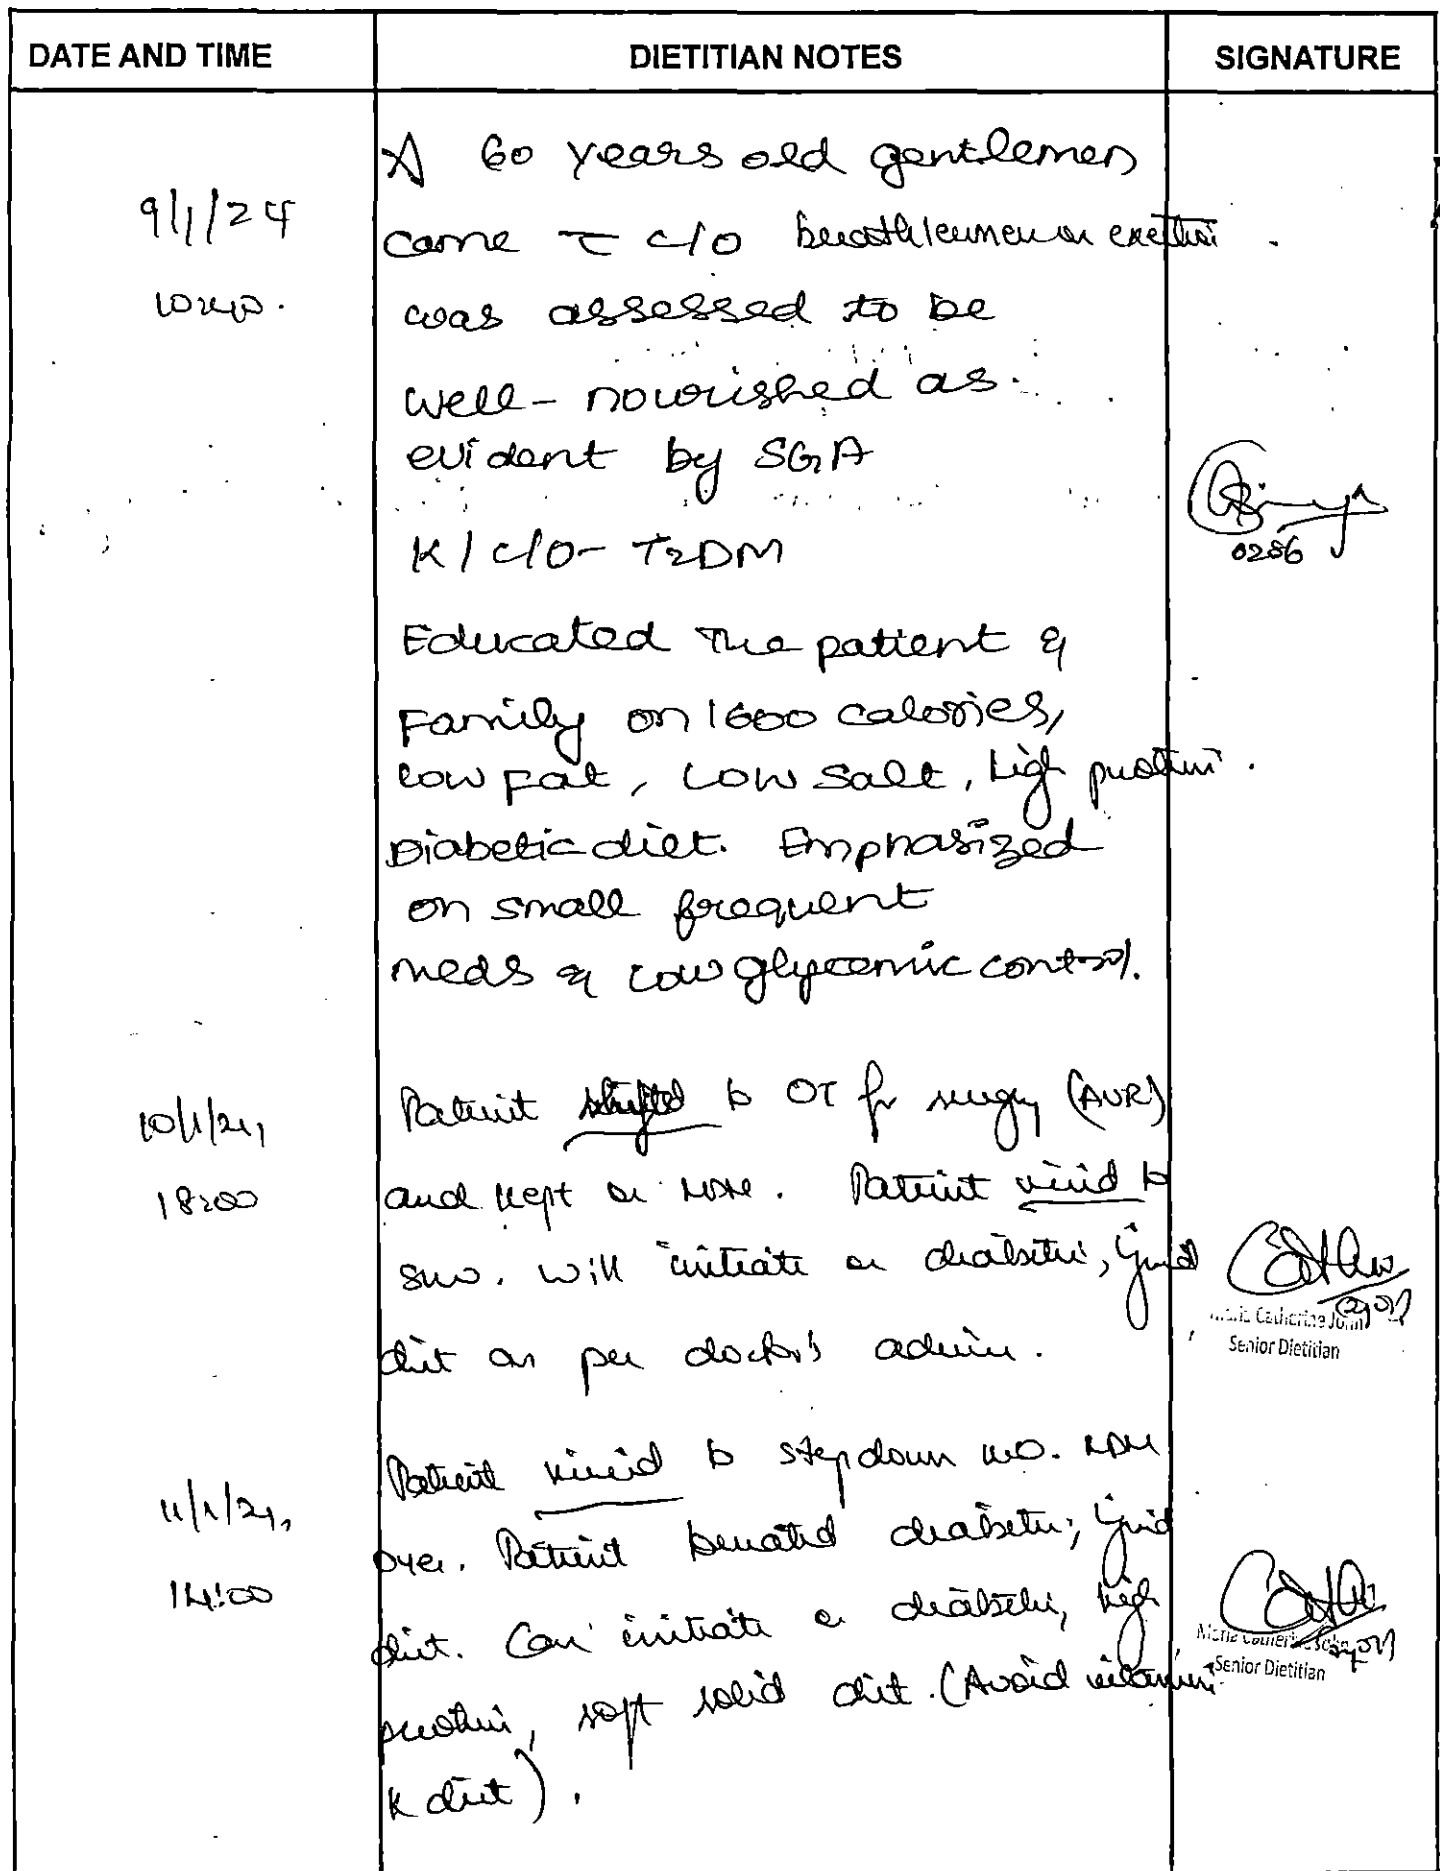 DATE AND TIME DIETITIAN NOTES SIGNATURE
A 60 years old gentlemen
9/1/24 came c̄ c/o breathlessness on exertion
was assessed to be
well-nourished as
evident by SGA
K/c/o- T2DM
0286
Educated the patient &
Family on 1600 calories,
low fat, low salt, high protein.
Diabetic diet. Emphasized
on small frequent
meals & low glycemic control.
10/1/24, Patient shifted to OT for surgery (AVR)
18:00 and kept on NBM. Patient to
will initiate on diabetic, liquid
diet as per doctor's advice.
Maria Catherine John
Senior Dietitian
11/1/24, Patient to stepdown NBM
14:00 over. Patient tolerated diabetic, liquid
diet. Can initiate on diabetic, high
protein, soft solid diet. (Avoid vitamin
K diet).
Maria Catherine John
Senior Dietitian